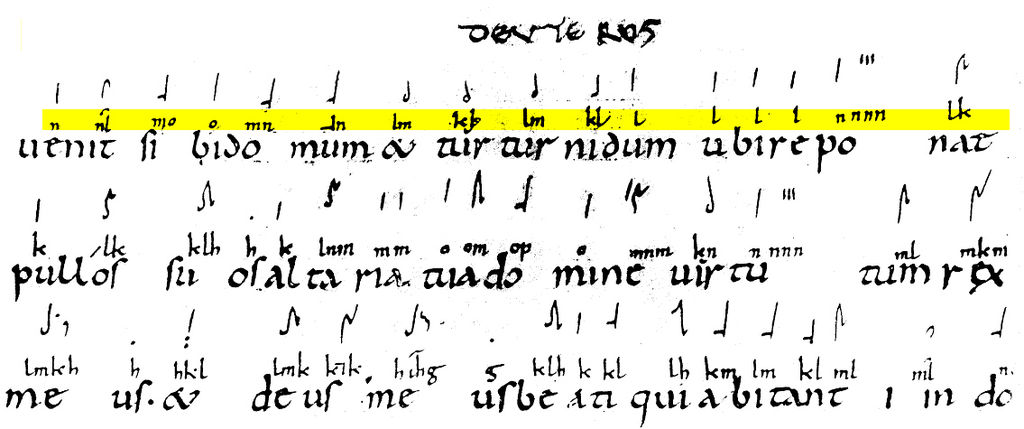 DEVTEROS
n nl mo o mn ln lm lm kl l l l l n nnn lk
uenit si bido mum & tur tur nidum ubi re po nat
k lk klh h k lnm m m o om op o mnm kn n nnn ml mkm
pullos su os al ta ria tua do mine uir tu tum rex
lmkh h hkl lmk klh k kl lh km lm kl ml ml n
me us. & de us me us be ati qui abitant i in do